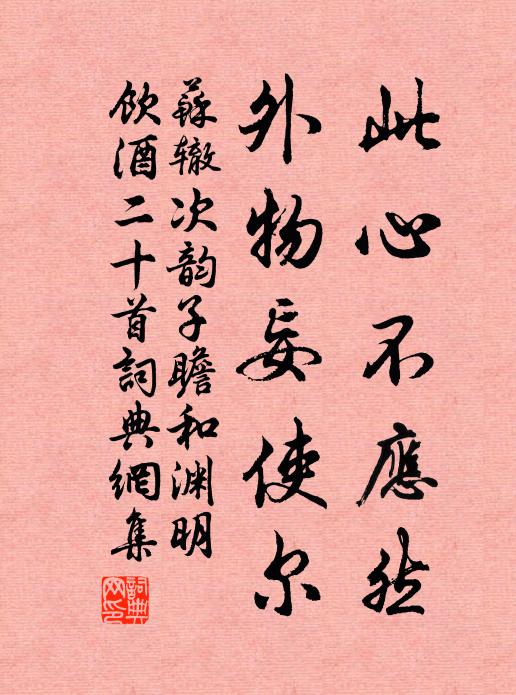 此心不應然
外物妄使尔
蘇辙次韵子瞻和渊明
飲酒二十首詞典網集
詞典
网印